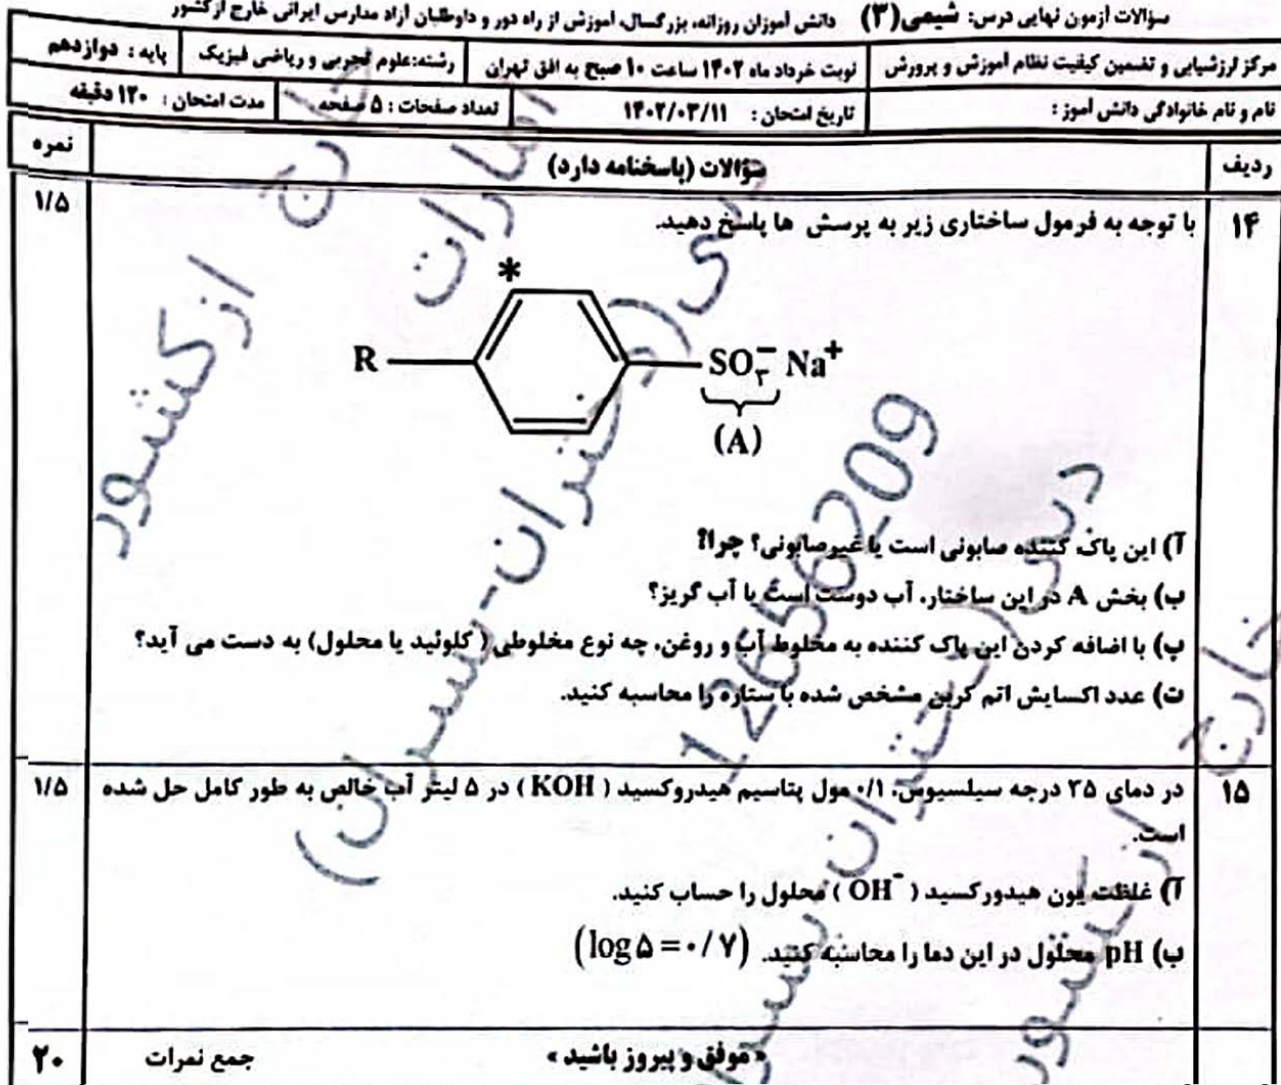 سوالات آزمون نهایی درس: شیمی(۳) دانش آموزان روزانه، بزرگسال، آموزش از راه دور و داوطلبان آزاد مدارس ایرانی خارج ازکشور
مرکز ارزشیابی و تضمین کیفیت نظام آموزش و پرورش نوبت خرداد ماه ۱۴۰۲ ساعت ۱۰ صبح به افق تهران رشته:علوم تجربی و ریاضی فیزیک پایه : دوازدهم
نام و نام خانوادگی دانش آموز : تاریخ امتحان : ۱۴۰۲/۰۳/۱۱ تعداد صفحات : ۵ صفحه مدت امتحان : ۱۲۰ دقیقه
ردیف سؤالات (پاسخنامه دارد) نمره
۱۴ با توجه به فرمول ساختاری زیر به پرسش ها پاسخ دهید. ۱/۵
*
R SO₃⁻ Na⁺
(A)
آ) این پاک کننده صابونی است یا غیرصابونی؟ چرا؟
ب) بخش A در این ساختار، آب دوست است یا آب گریز؟
پ) با اضافه کردن این پاک کننده به مخلوط آب و روغن، چه نوع مخلوطی ( کلوئید یا محلول) به دست می آید؟
ت) عدد اکسایش اتم کربن مشخص شده با ستاره را محاسبه کنید.
۱۵ در دمای ۲۵ درجه سیلسیوس، ۰/۱ مول پتاسیم هیدروکسید ( KOH ) در ۵ لیتر آب خالص به طور کامل حل شده ۱/۵
است.
آ) غلظت یون هیدورکسید ( OH⁻ ) محلول را حساب کنید.
ب) pH محلول در این دما را محاسبه کنید. (log ۵ = ۰/۷)
« موفق و پیروز باشید » جمع نمرات ۲۰
12656209
خارج از کشور